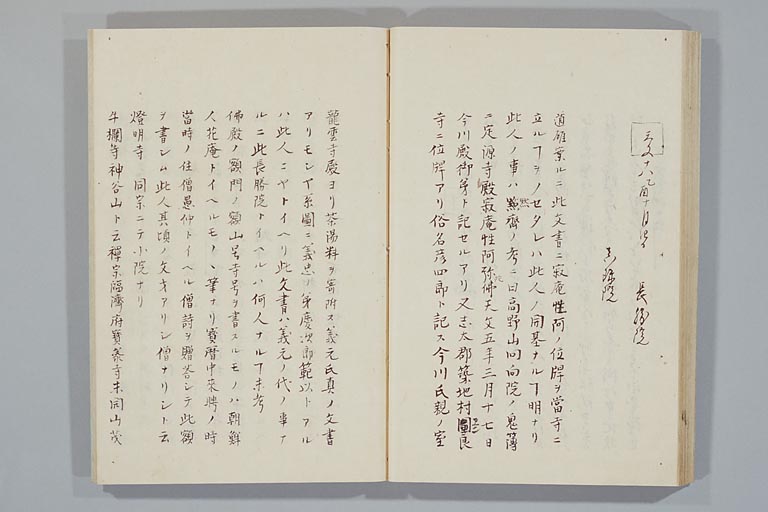 天文十八己酉十月廿四
長勝院
真珠院
道雄案ルニ此文書ニ寂庵性阿ノ位牌ヲ當寺ニ
立ルヿヲノセタレハ此人ノ開基ナルヿ明ナリ
此人ノ事ハ黙齋ノ考ニ曰高野山回向院ノ鬼簿
ニ定源寺殿寂庵性阿弥陀佛天文五年三月十七日
今川殿御弟ト記セルアリ又志太郡築地村圓良
寺ニ位牌アリ俗名彦四郎ト記ス今川氏親ノ室
龍雲寺殿ヨリ茶湯料ヲ寄附ス義元氏真ノ文書
アリモシヤ系圖ニ義忠ノ弟慶次郎範以トアル
ハ此人ニヤトイヘリ此文書ハ義元ノ代ノ事ナ
ルニ此長勝院トイヘルハ何人ナルヿ未考
佛殿ノ額門ノ額山号寺号ヲ書スルモノハ朝鮮
人花庵トイヘルモノヽ筆ナリ寳暦中來聘ノ時
當時ノ住僧愚仲トイヘル僧詩ヲ贈答シテ此額
ヲ書シム此人其頃ノ文才アリシ僧ナリシト云
燈明寺 同宗ニテ小院ナリ
牛欄寺神谷山ト云禪宗臨濟府寳泰寺末開山茂